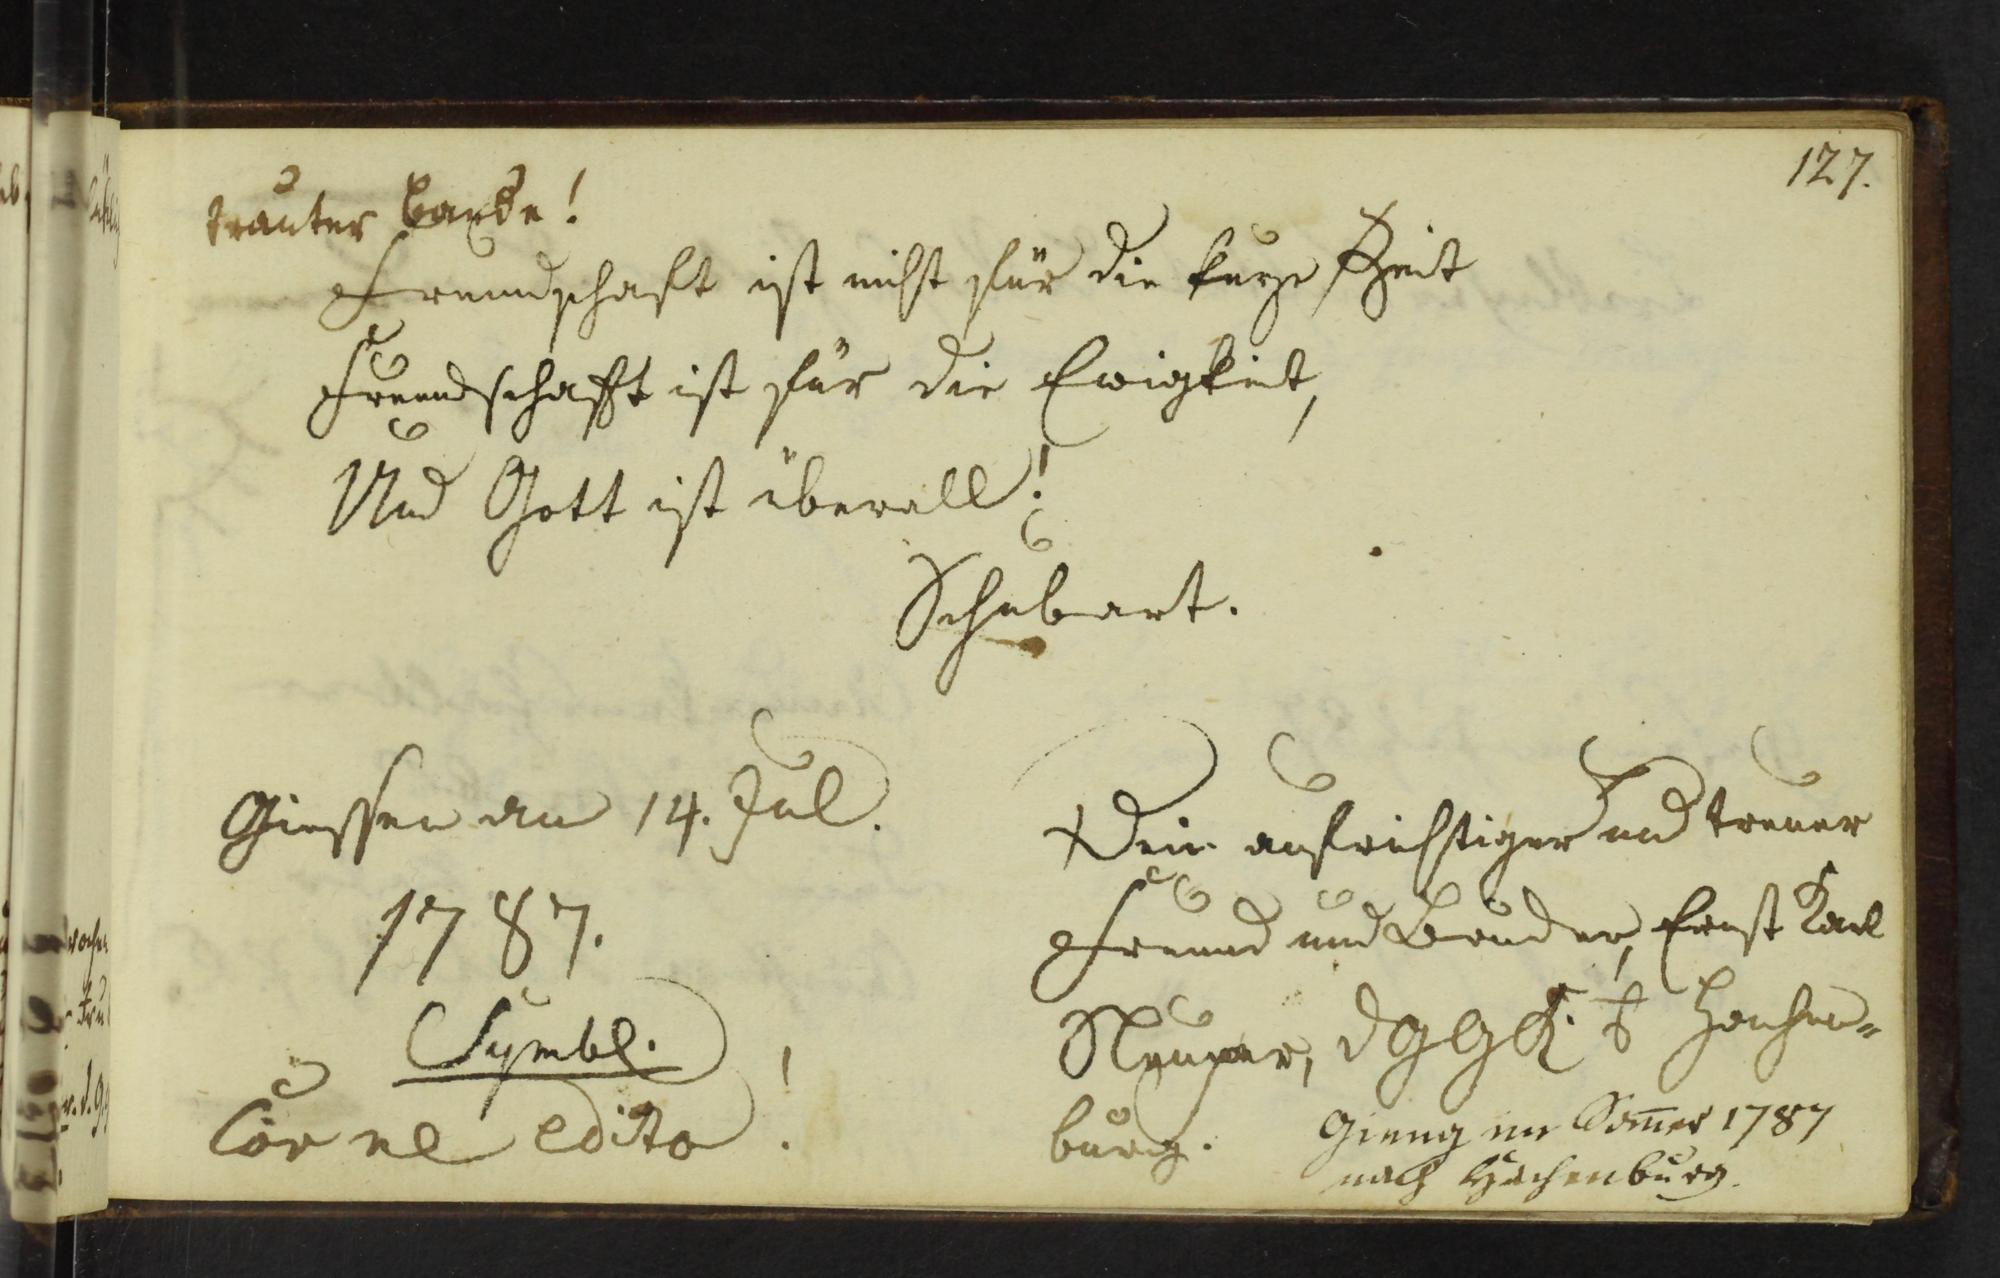 127.
trauter Barde!
Freundschaft ist nicht für die kurze Zeit
Freundschafft ist für die Ewigkeit,
Und Gott ist überall!
Schubart.
Giessen am 14. Jul.
1787.
Symbl.
Cor ne edito!
Dein aufrichtiger und treuer
Freund und Bruder, Ernst Karl
Neuper, d G G K. Hachen=
burg.
Gieng im Som̅er 1787
nach Hachenburg.